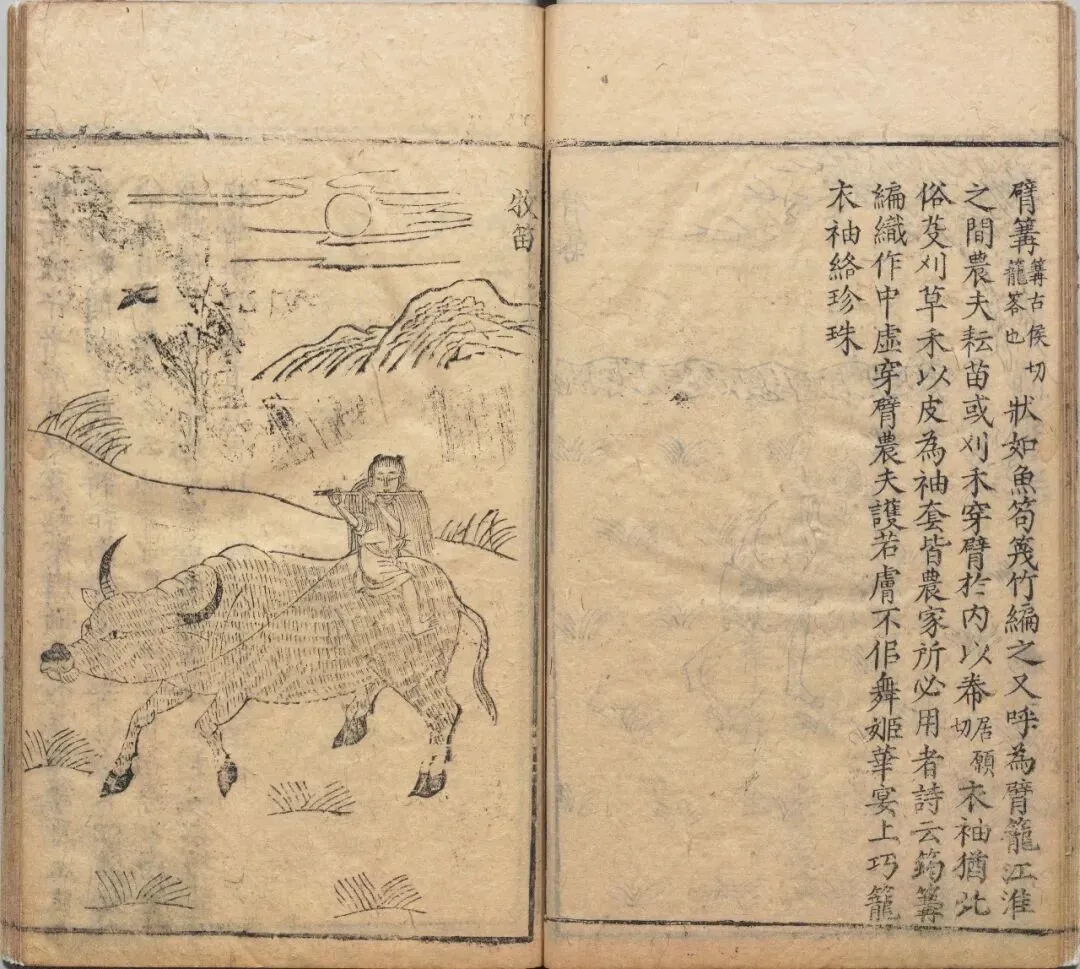 臂篝篝古侯切籠笭也狀如魚笱篾竹編之又呼為臂籠江淮
之間農夫耘苗或刈禾穿臂於內以帣居願切衣袖猶北
俗芟刈草禾以皮為袖套皆農家所必用者詩云筠篝
編織作中虛穿臂農夫護若膚不但舞姬華宴上巧籠
衣袖絡珍珠
牧笛